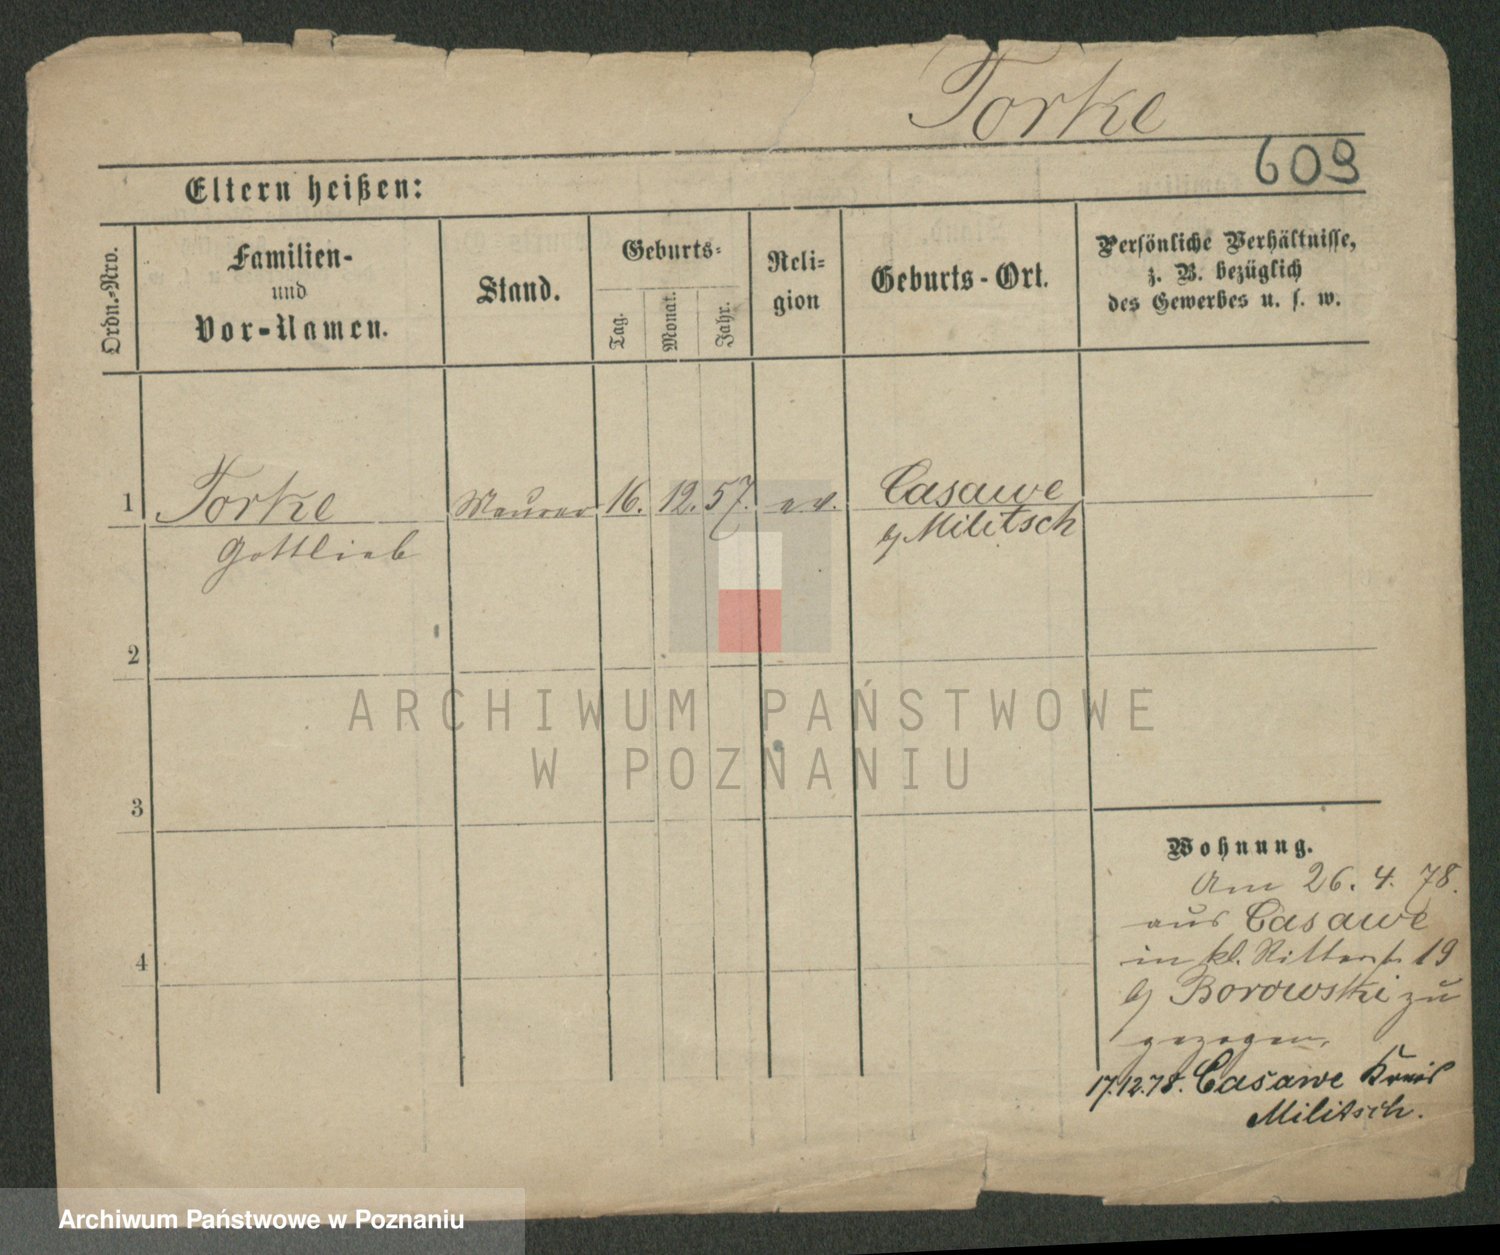 Torke
609
Eltern heißen:
Ordn.-Nro.
Familien-
und
Vor-Namen.
Stand.
Geburts-
Tag.
Monat.
Jahr.
Reli-
gion
Geburts-Ort.
Persönliche Verhältnisse,
z. B. bezüglich
des Gewerbes u. s. w.
1 Torke Maurer 16. 12. 57. ev. Casawe
Gottlieb b/ Militsch
2
3
4
Wohnung.
Am 26. 4. 78.
aus Casawe
in kl. Ritterst. 19
b/ Borowski zu
gezogen.
17.12.78. Casawe Kreis
Militsch.
ARCHIWUM PAŃSTWOWE
W POZNANIU
Archiwum Państwowe w Poznaniu